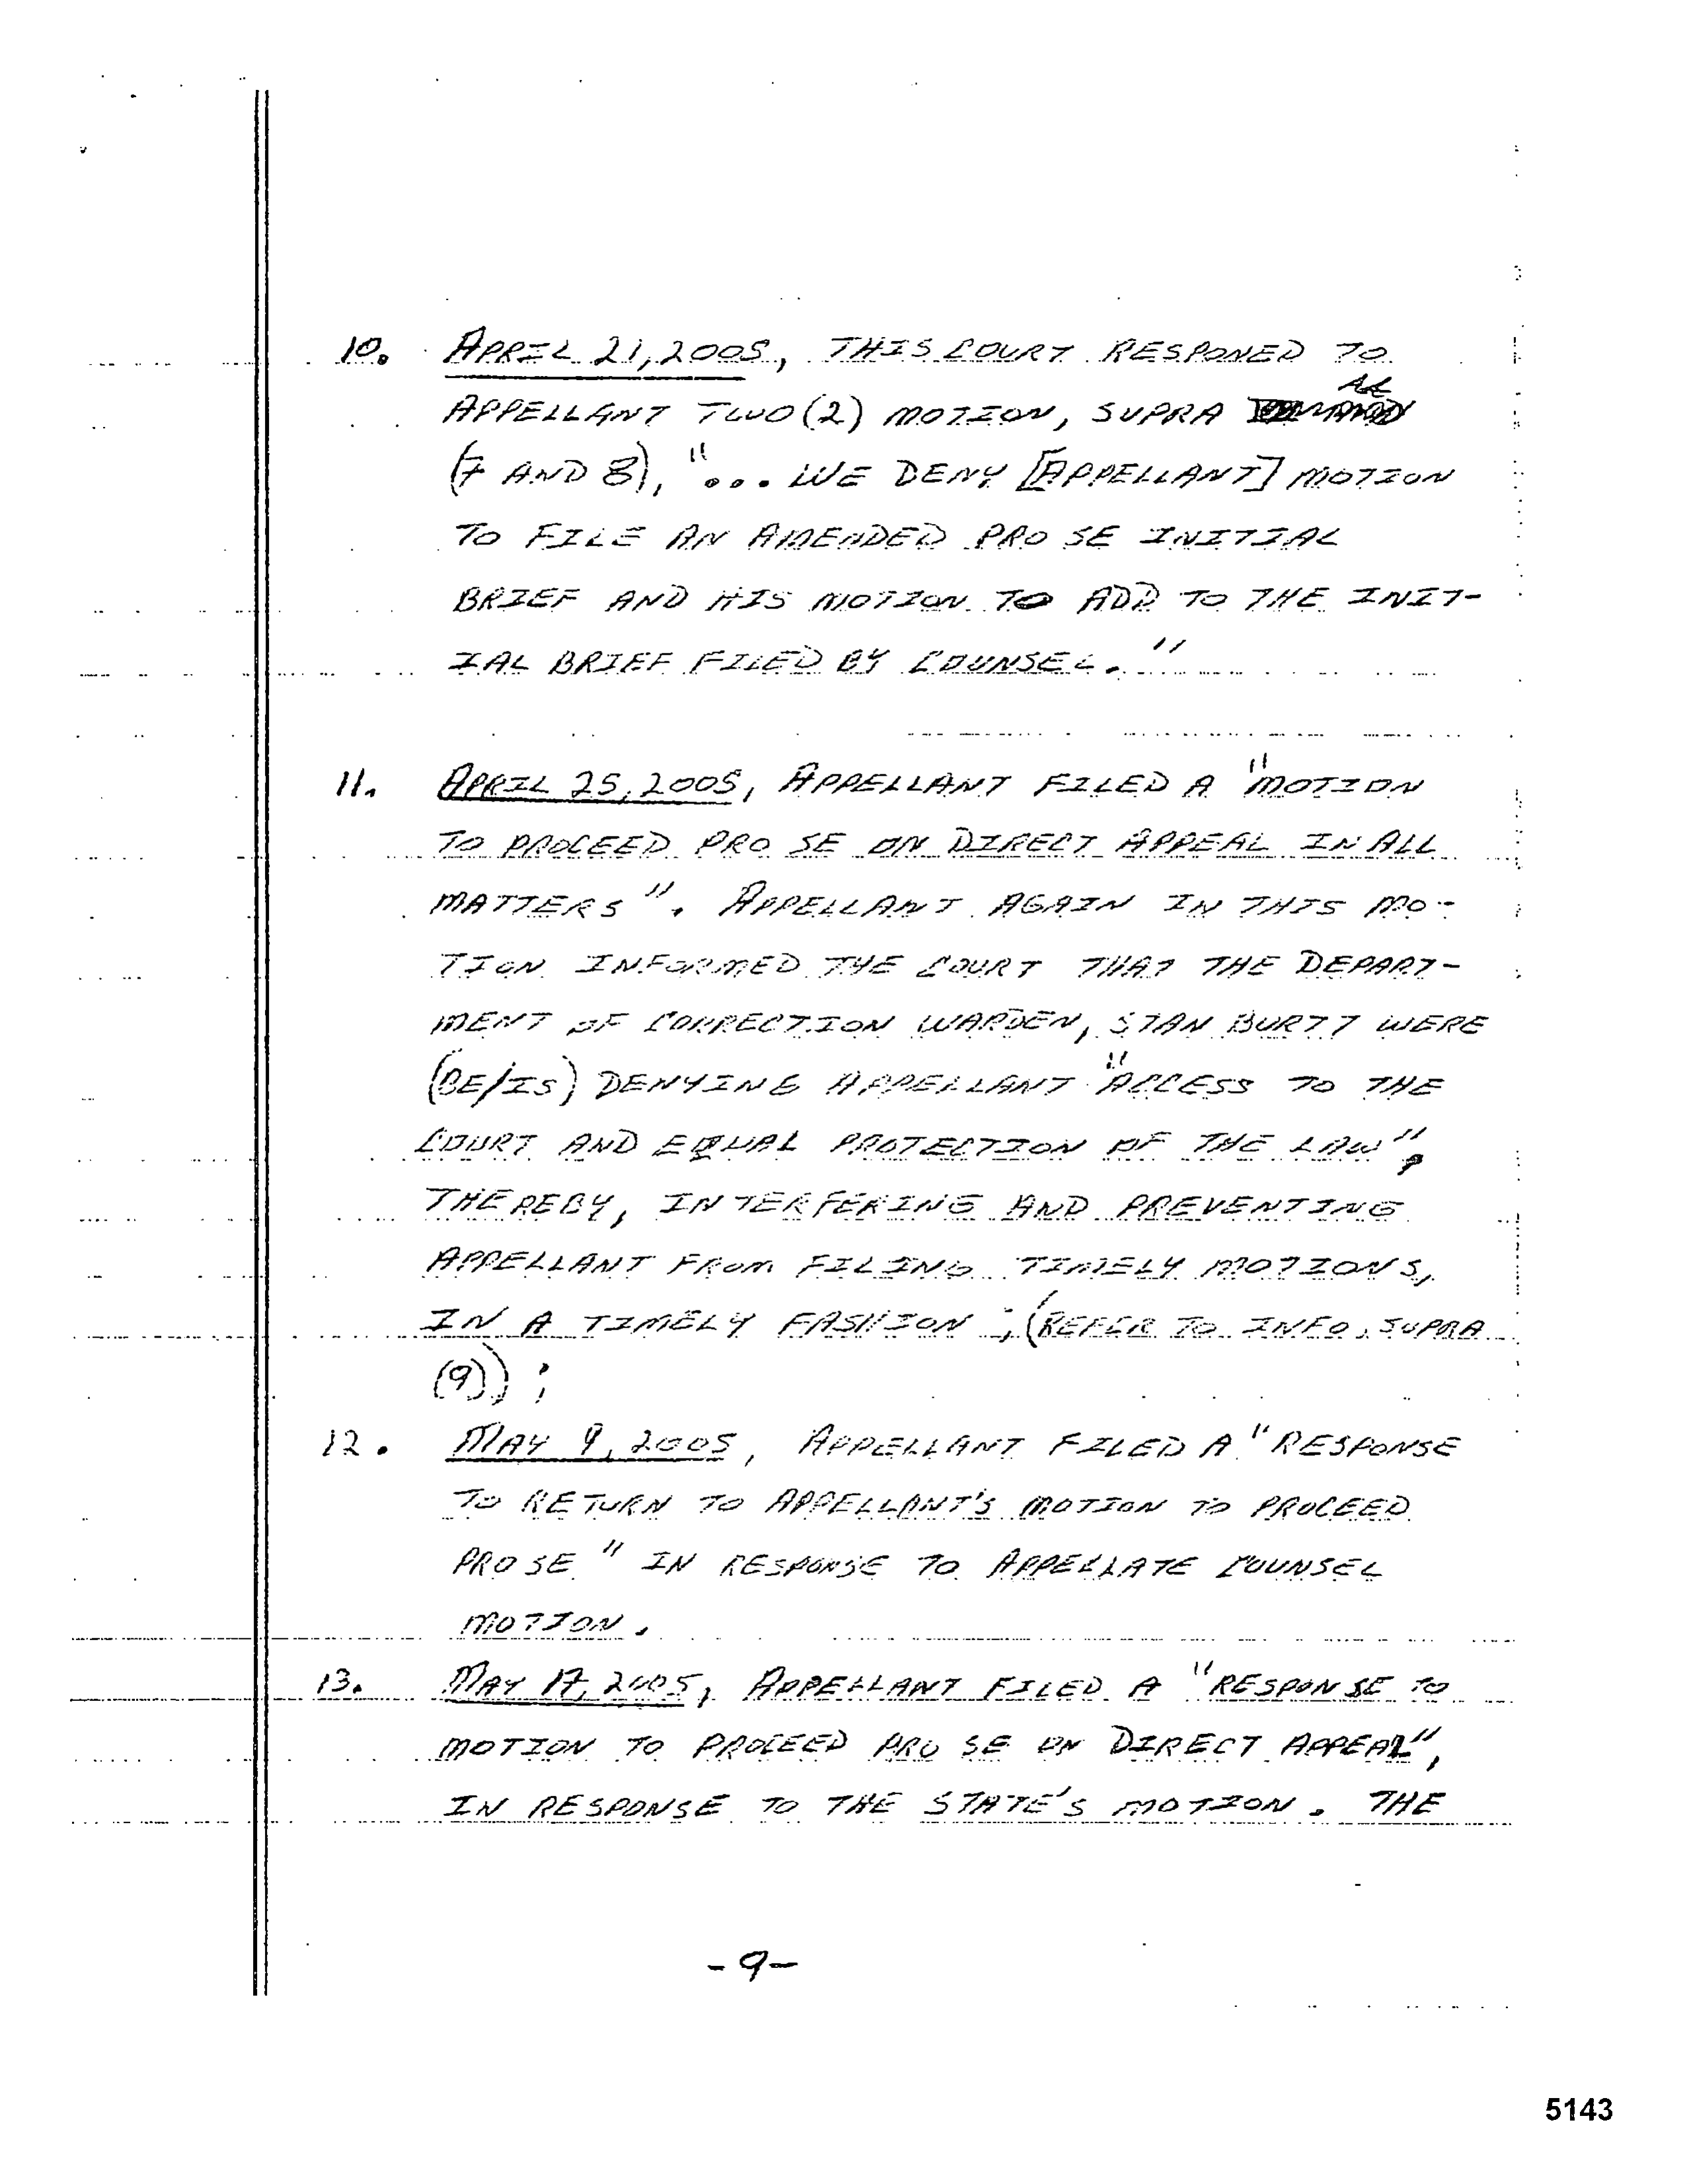 10. APRIL 21, 2005, THIS COURT RESPONED TO
APPELLANT TWO (2) MOTION, SUPRA
(7 AND 8), "... WE DENY [APPELLANT] MOTION
TO FILE AN AMENDED PRO SE INITIAL
BRIEF AND HIS MOTION TO ADD TO THE INIT-
IAL BRIEF FILED BY COUNSEL."
11. APRIL 25, 2005, APPELLANT FILED A "MOTION
TO PROCEED PRO SE ON DIRECT APPEAL IN ALL
MATTERS". APPELLANT AGAIN IN THIS MO-
TION INFORMED THE COURT THAT THE DEPART-
MENT OF CORRECTION WARDEN, STAN BURTT WERE
(BE/IS) DENYING APPELLANT "ACCESS TO THE
COURT AND EQUAL PROTECTION OF THE LAW",
THEREBY, INTERFERING AND PREVENTING
APPELLANT FROM FILING TIMELY MOTIONS,
IN A TIMELY FASHION; (REFER TO INFO. SUPRA
(9));
12. MAY 9, 2005, APPELLANT FILED A "RESPONSE
TO RETURN TO APPELLANT'S MOTION TO PROCEED
PRO SE" IN RESPONSE TO APPELLATE COUNSEL
MOTION.
13. MAY 17, 2005, APPELLANT FILED A "RESPONSE TO
MOTION TO PROCEED PRO SE ON DIRECT APPEAL",
IN RESPONSE TO THE STATE'S MOTION. THE
-9-
5143